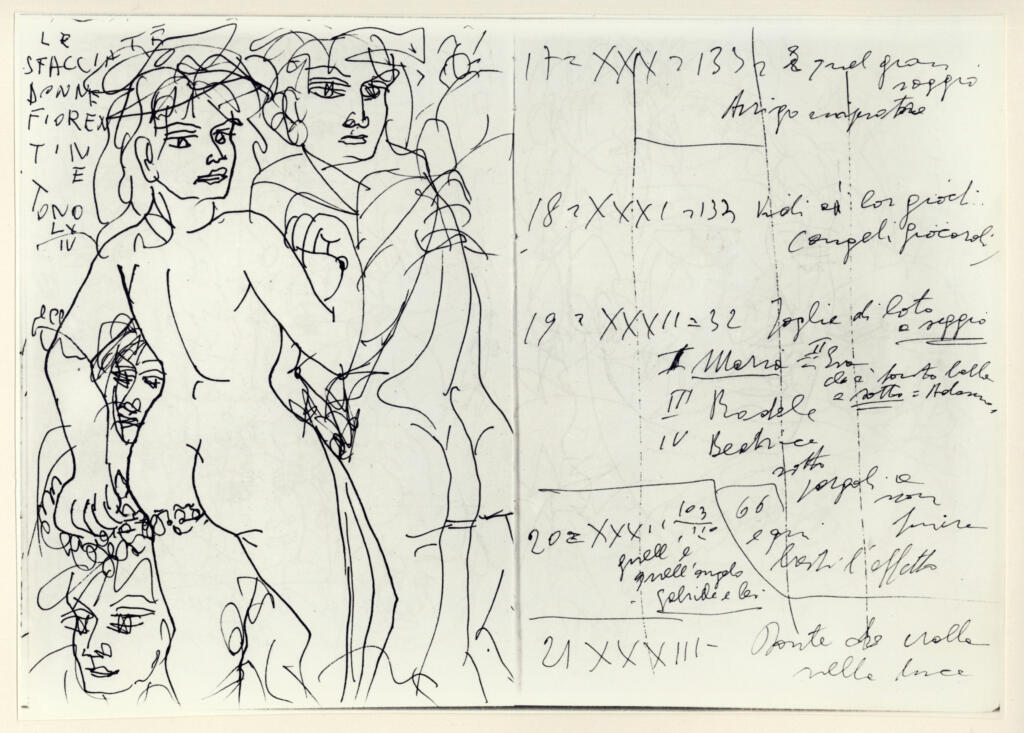 LE
SFACCIATE
DONNE
FIOREN
TINE
TONO
LX
IV
17 = XXX = 133 = & quel gran
seggio
Arrigo imperatore
18 = XXXI = 132 vidi ai lor giochi
e angeli giocondi
19 = XXXII = 32 foglie di loto
e seggio
I Maria = II Eva
a sotto = Adamo,
III Rachele
IV Beatrice
sotto
non
finire
20 = XXXII 103/110 66
quell'è e qui
quell'angelo basti l'effetto
gabriele e lei
21 XXXIII - Dante che crolla
nella luce